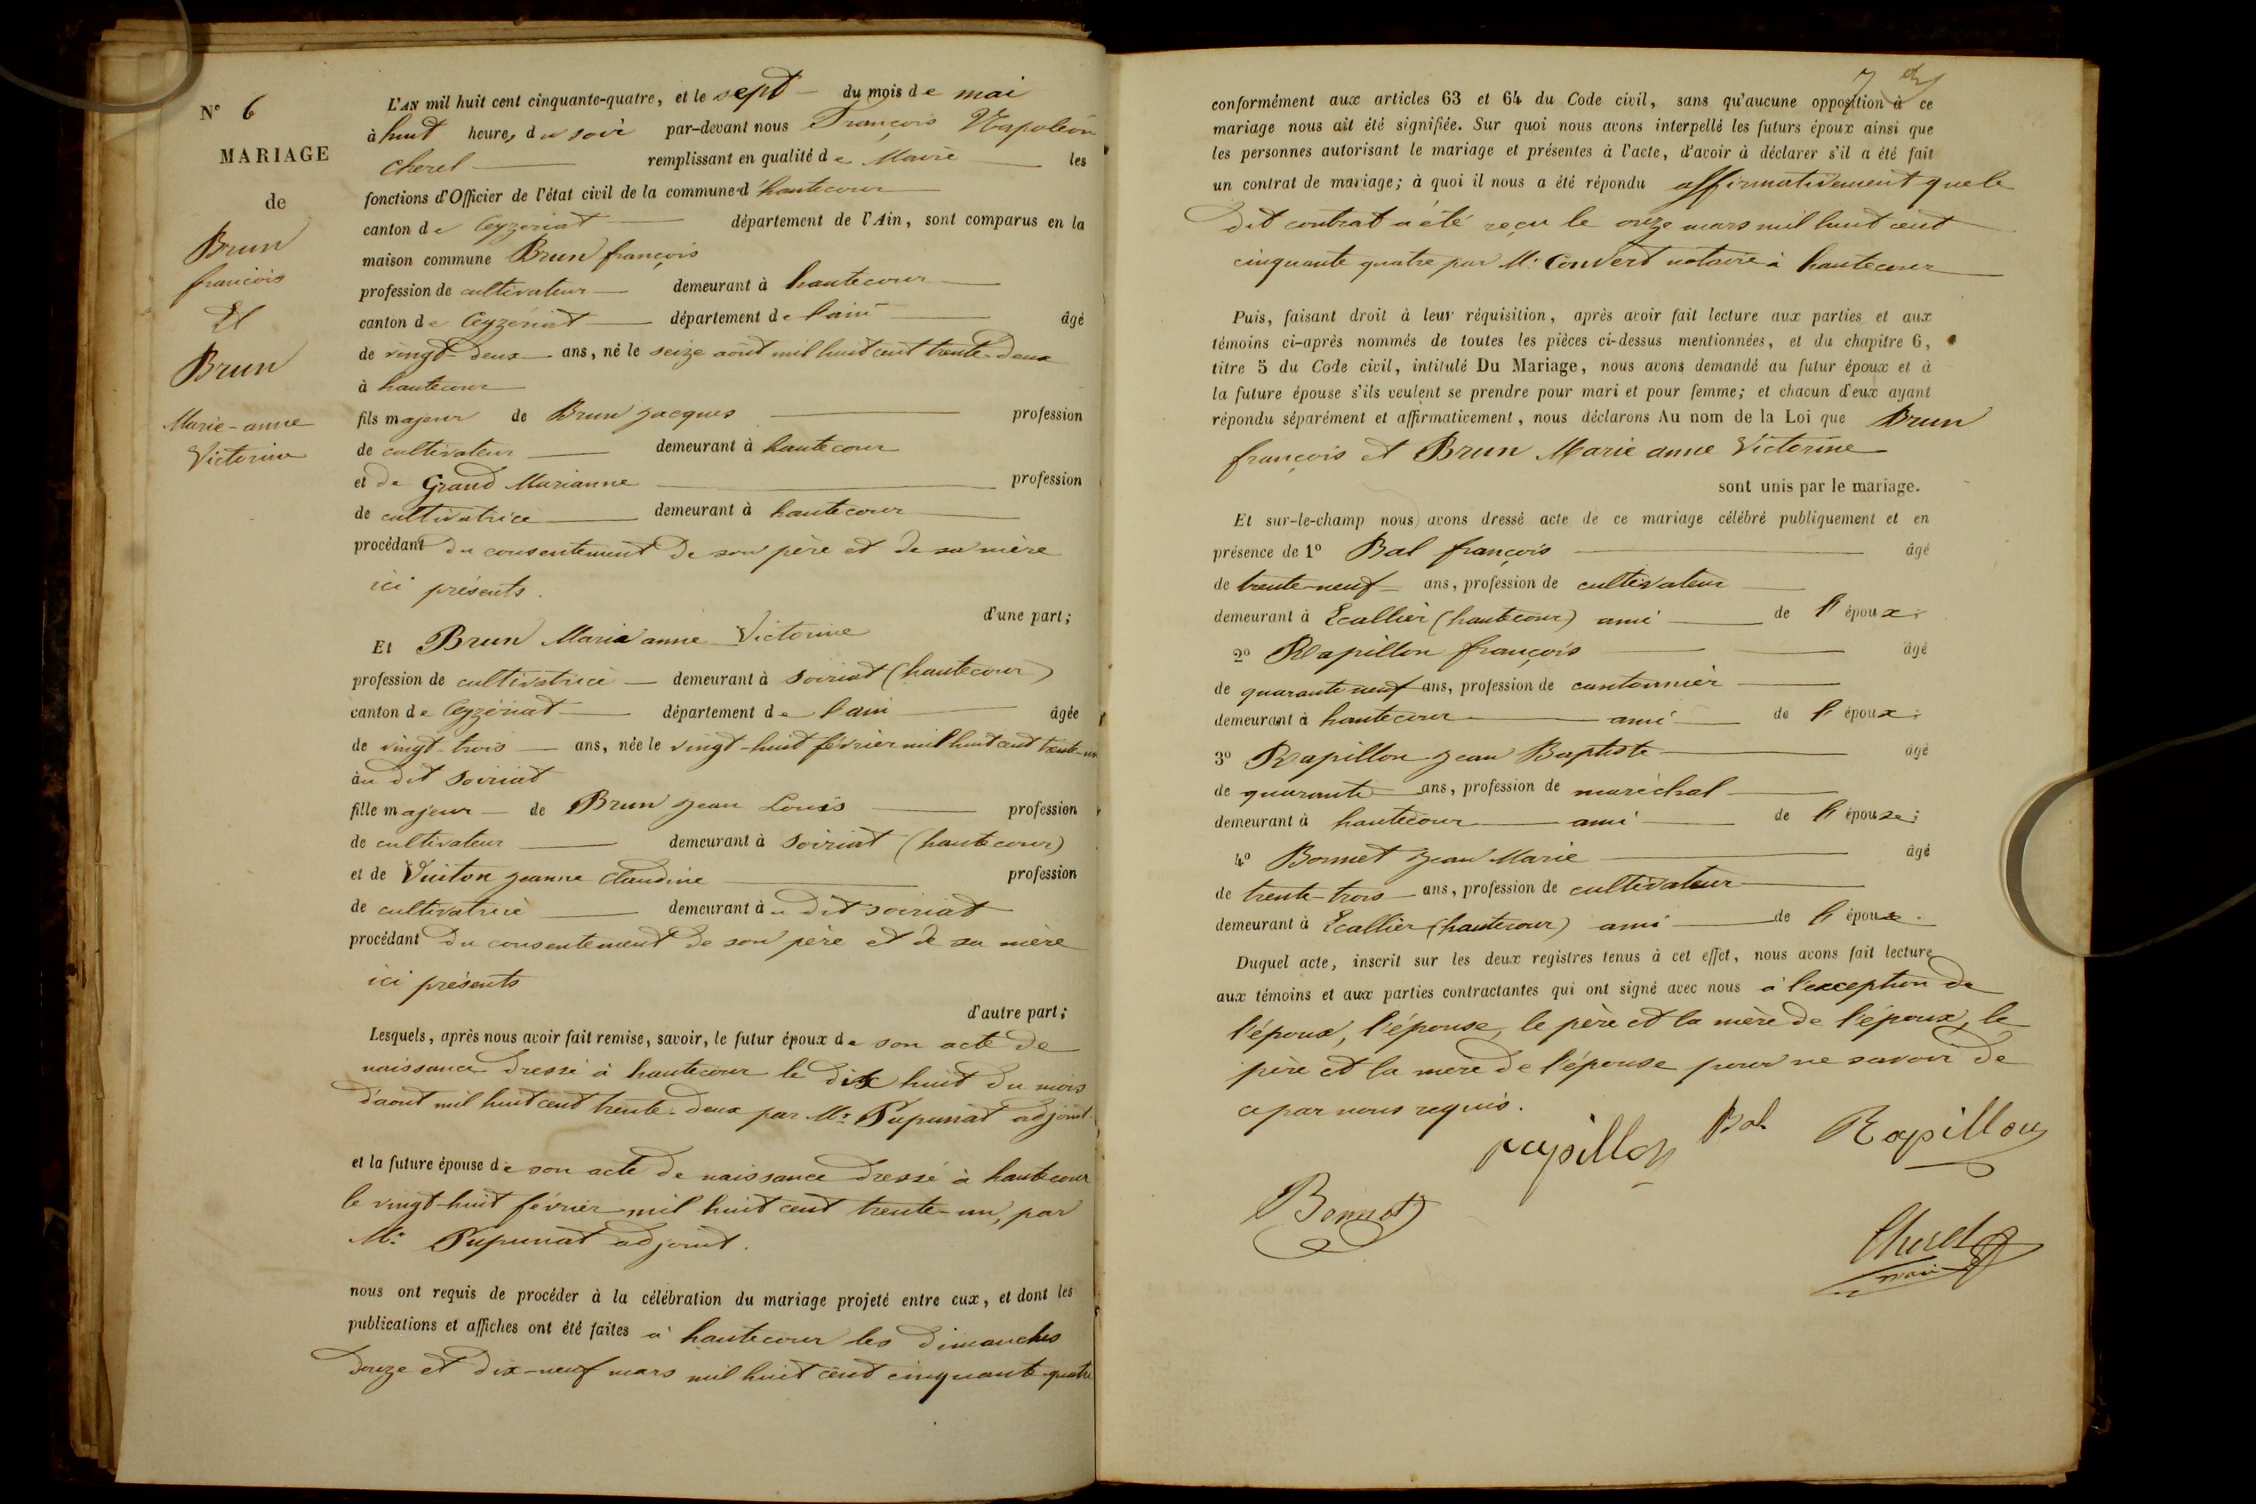 N° 6
MARIAGE
de
Brun
françois
Et
Brun
Marie-anne
Victorine
L'AN mil huit cent cinquante-quatre, et le sept du mois de mai
à huit heures du soir par-devant nous François Napoléon
Cherel remplissant en qualité de Maire les
fonctions d'Officier de l'état civil de la commune d'hautecour
canton de Ceyzeriat département de l'Ain, sont comparus en la
maison commune Brun françois
profession de cultivateur demeurant à hautecour
canton de Ceyzériat département de l'ain âgé
de vingt-deux ans, né le seize août mil huit cent trente-deux
à hautecour
fils majeur de Brun jacques profession
de cultivateur demeurant à hautecour
et de Grand Marianne profession
de cultivatrice demeurant à hautecour
procédant du consentement de son père et de sa mère
ici présents.
d'une part;
Et Brun Marie anne Victorine
profession de cultivatrice demeurant à Soiriat (hautecour)
canton de Ceyzériat département de l'ain âgée
de vingt-trois ans, née le vingt-huit février mil huit cent trente-un
au dit Soiriat
fille majeur de Brun jean Louis profession
de cultivateur demeurant à Soiriat (hautecour)
et de Vuiton jeanne Claudine profession
de cultivatrice demeurant au dit soiriat
procédant du consentement de son père et de sa mère
ici présents
d'autre part;
Lesquels, après nous avoir fait remise, savoir, le futur époux de son acte de
naissance dressé à hautecour le dix huit du mois
d'aout mil huit cent trente-deux par Mr Pupunat adjoint
et la future épouse de son acte de naissance dressé à hautecour
le vingt-huit février mil huit cent trente-un, par
Mr Pupunat adjoint.
nous ont requis de procéder à la célébration du mariage projeté entre eux, et dont les
publications et affiches ont été faites à hautecour les dimanches
douze et dix-neuf mars mil huit cent cinquante-quatre
7
conformément aux articles 63 et 64 du Code civil, sans qu'aucune opposition à ce
mariage nous ait été signifiée. Sur quoi nous avons interpellé les futurs époux ainsi que
les personnes autorisant le mariage et présentes à l'acte, d'avoir à déclarer s'il a été fait
un contrat de mariage; à quoi il nous a été répondu affirmativement que le
dit contrat a été reçu le onze mars mil huit cent
cinquante quatre par Mr Convert notaire à hautecour
Puis, faisant droit à leur réquisition, après avoir fait lecture aux parties et aux
témoins ci-après nommés de toutes les pièces ci-dessus mentionnées, et du chapitre 6,
titre 5 du Code civil, intitulé Du Mariage, nous avons demandé au futur époux et à
la future épouse s'ils veulent se prendre pour mari et pour femme; et chacun d'eux ayant
répondu séparément et affirmativement, nous déclarons Au nom de la Loi que Brun
françois et Brun Marie anne Victorine
sont unis par le mariage.
Et sur-le-champ nous avons dressé acte de ce mariage célébré publiquement et en
présence de 1° Bal françois âgé
de trente-neuf ans, profession de cultivateur
demeurant à Ecallier (hautecour) ami de l'époux;
2° Rapillon françois âgé
de quarante neuf ans, profession de cantonnier
demeurant à hautecour ami de l'époux;
3° Rapillon jean Baptiste âgé
de quarante ans, profession de maréchal
demeurant à hautecour ami de l'épouse;
4° Bonnet jean Marie âgé
de trente-trois ans, profession de cultivateur
demeurant à Ecallier (hautecour) ami de l'épouse.
Duquel acte, inscrit sur les deux registres tenus à cet effet, nous avons fait lecture
aux témoins et aux parties contractantes qui ont signé avec nous à l'exception de
l'époux, l'épouse, le père et la mère de l'époux, le
père et la mère de l'épouse pour ne savoir de
ce par nous requis.
rapillon Bal Rapillon
Bonnet
Cherel
maire